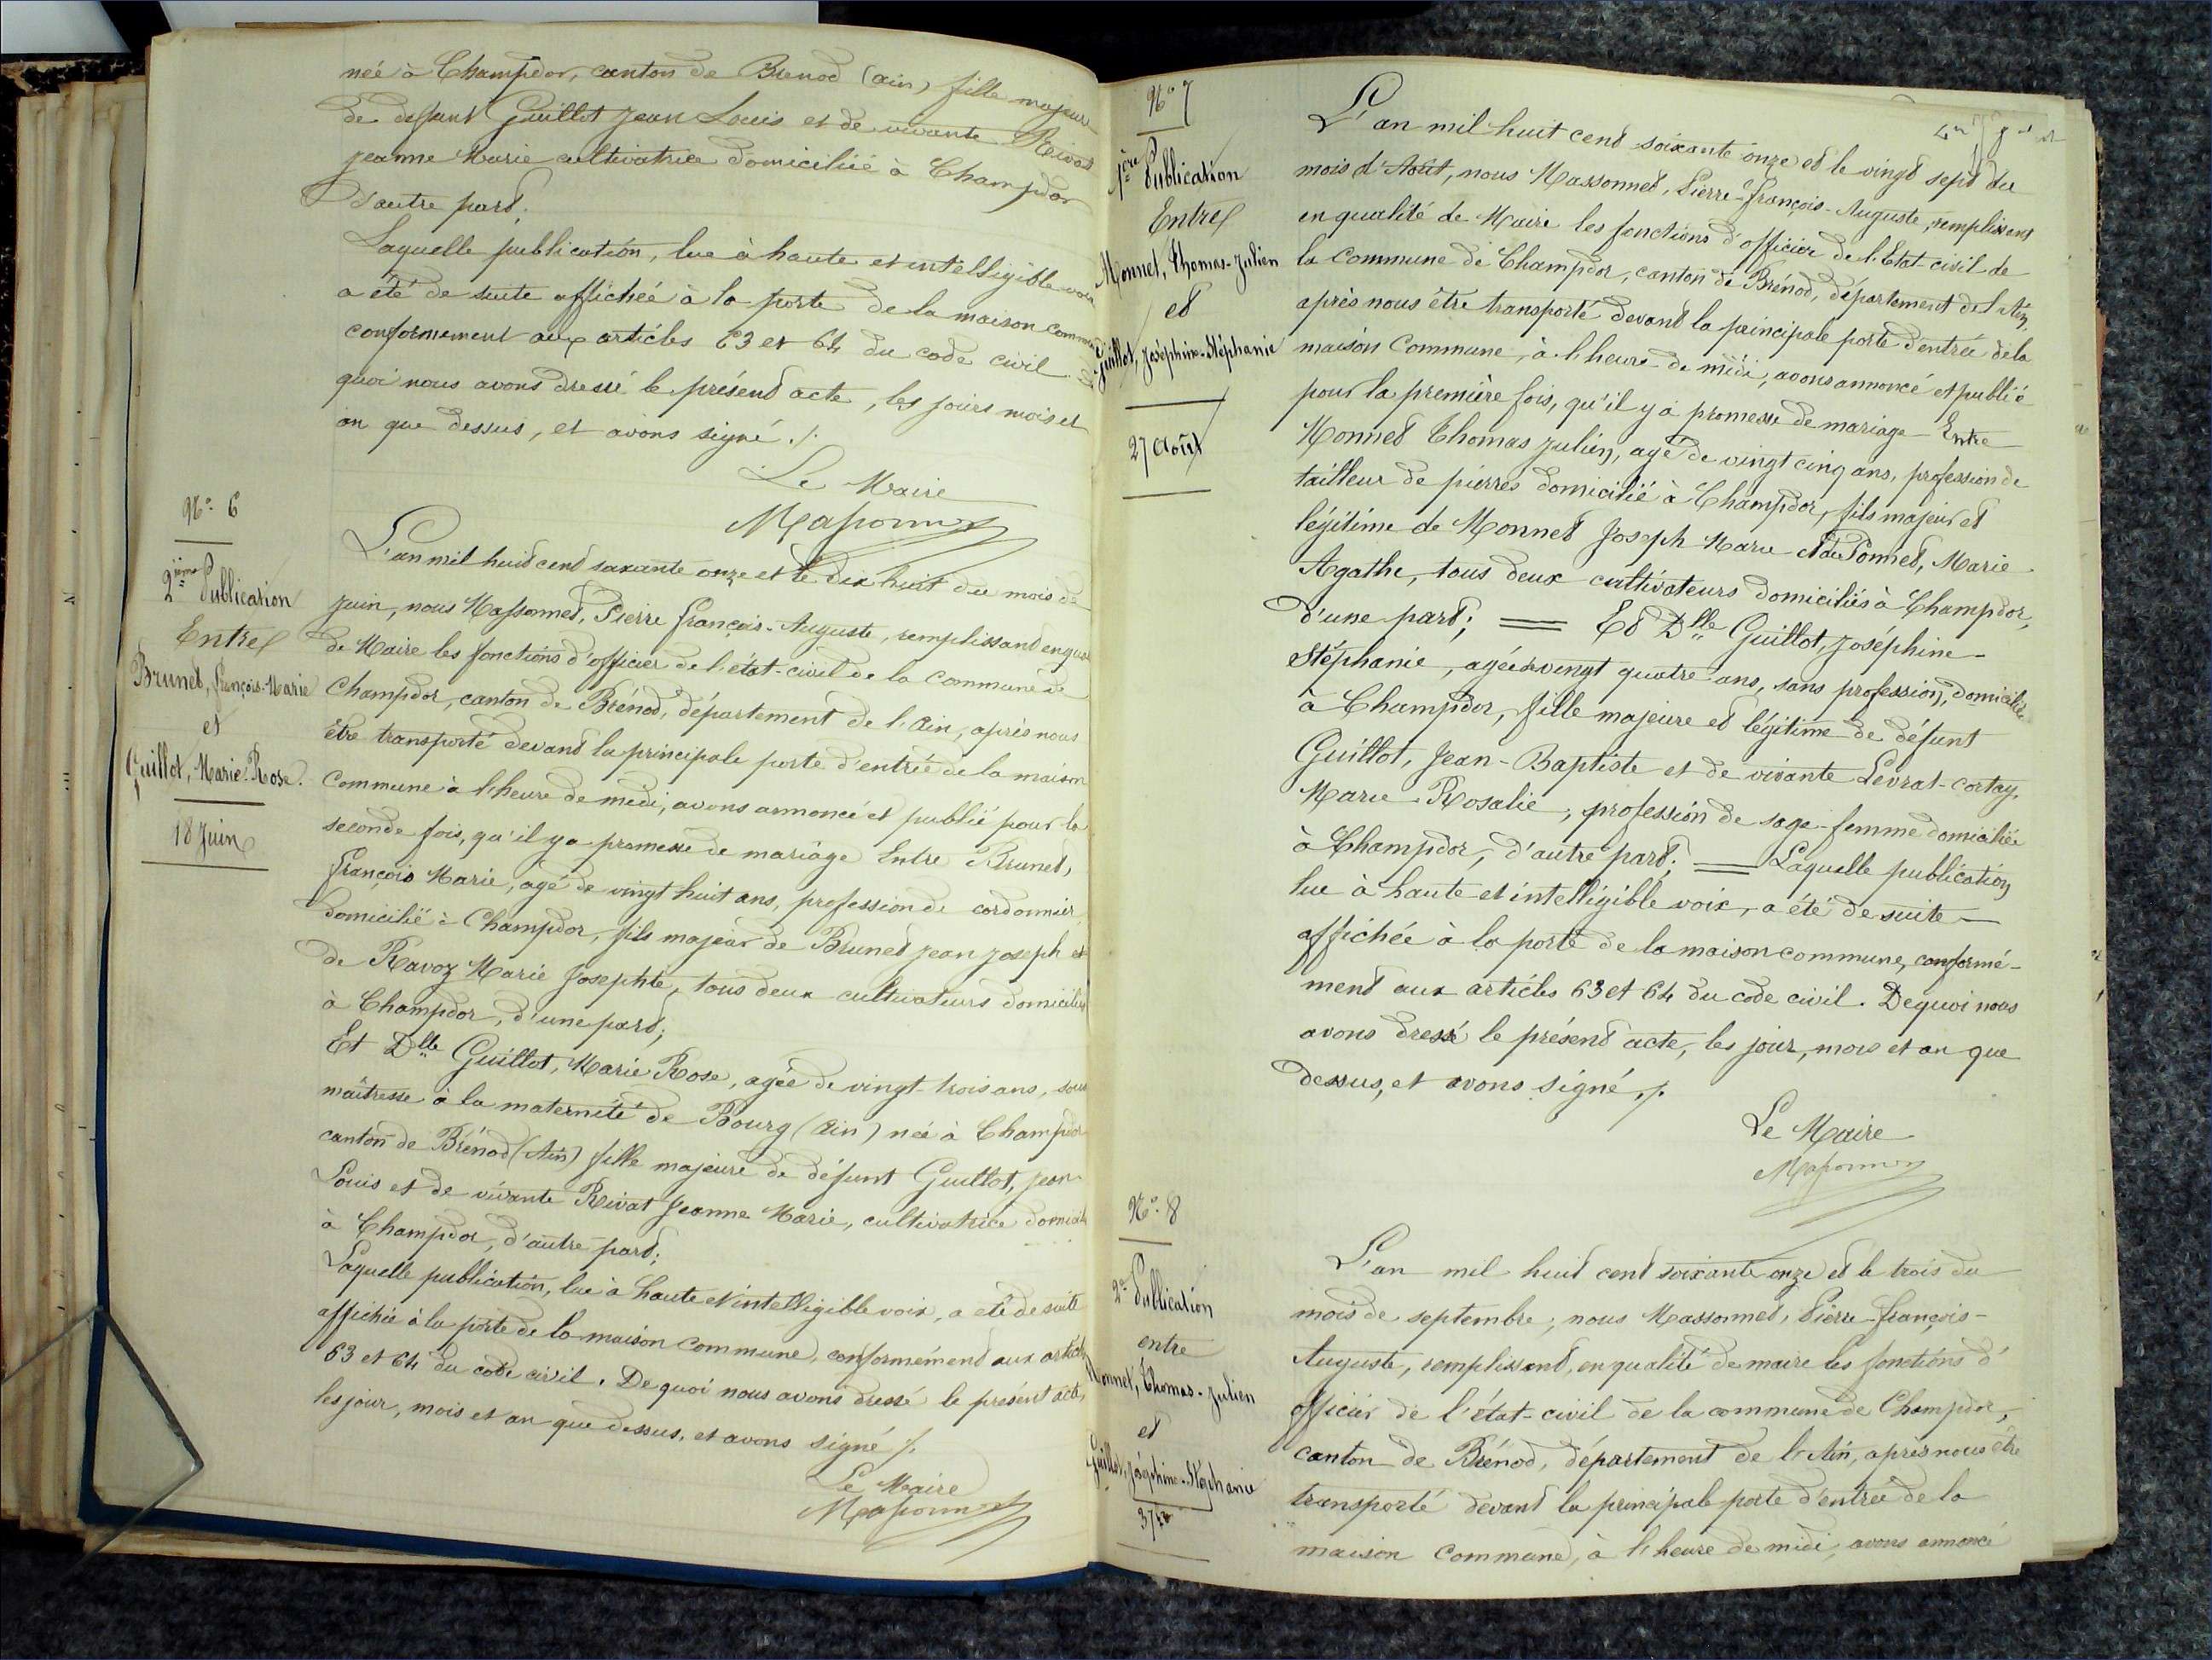 née à Champdor, canton de Brenod (ain) fille majeure
de defunt Guillot Jean Louis et de vivante Rivat
jeanne Marie cultivatrice domiciliée à Champdor
D'autre part;
Laquelle publication, lue à haute et intelligible voix
a été de suite affichée à la porte de la maison commune
conformement aux articles 63 et 64 du code civil. De
quoi nous avons dressé le présent acte, les jours mois et
an que dessus, et avons signé ./.
Le Maire
Massonnet
N° 6
2ième Publication
Entre
Brunet, François-Marie
et
Guillot, Marie-Rose.
18 Juin
L'an mil huit cent soixante onze et le dix huit du mois de
Juin, nous Massonnet, Pierre François-Auguste, remplissant en qua
de Maire les fonctions d'officier de l'état-civil de la Commune de
Champdor, canton de Brénod, département de l'Ain, après nous
être transporté devant la principale porte d'entrée de la maison
Commune à l'heure de midi, avons annoncé et publié pour la
seconde fois, qu'il y a promesse de mariage Entre Brunet,
François Marie, agé de vingt huit ans, profession de cordonnier
domicilié à Champdor, fils majeur de Brunet Jean Joseph et
de Ravoz Marie Josephte, tous deux cultivateurs domiciliés
à Champdor, d'une part;
Et Dlle Guillot, Marie Rose, agée de vingt-trois ans, sous
maîtresse à la maternité de Bourg (Ain) née à Champdor
canton de Brénod (Ain) fille majeure de défunt Guillot, Jean-
Louis et de vivante Rivat Jeanne Marie, cultivatrice domicil
à Champdor, d'autre part;
Laquelle publication, lue à haute et intelligible voix, a été de suite
affichée à la porte de la maison commune, conformément aux articles
63 et 64 du code civil. De quoi nous avons dressé le présent acte,
les jour, mois et an que dessus, et avons signé ./.
Le Maire
Massonnet
N° 7
1ère Publication
Entre
Monnet, Thomas-Julien
et
Guillot, Joséphine-Stéphanie
27 Août
L'an mil huit cent soixante onze et le vingt sept du
mois d'Août, nous Massonnet, Pierre-François-Auguste, remplissant
en qualité de Maire les fonctions d'officier de l'Etat-civil de
la Commune de Champdor, canton de Brénod, département de l'Ain,
après nous être transporté devant la principale porte d'entrée de la
maison Commune, à l'heure de midi, avons annoncé et publié
pour la première fois, qu'il y a promesse de mariage Entre
Monnet Thomas Julien, agé de vingt cinq ans, profession de
tailleur de pierres domicilié à Champdor, fils majeur et
légitime de Monnet Joseph Marie et de Ponnet, Marie
Agathe, tous deux cultivateurs domiciliés à Champdor,
d'une part; = Et Dlle Guillot, Joséphine-
Stéphanie, agée de vingt quatre ans, sans profession, domiciliée
à Champdor, fille majeure et légitime de défunt
Guillot, Jean-Baptiste et de vivante Levrat-Cortay,
Marie Rosalie, profession de sage-femme domiciliée
à Champdor, d'autre part; = Laquelle publication
lue à haute et intelligible voix, a été de suite
affichée à la porte de la maison commune, conformé-
ment aux articles 63 et 64 du code civil. De quoi nous
avons dressé le présent acte, les jour, mois et an que
dessus, et avons signé ./.
Le Maire
Massonnet
N° 8
2e Publication
entre
Monnet, Thomas-Julien
et
Guillot, Joséphine-Stéphanie
L'an mil huit cent soixante onze et le trois du
mois de septembre, nous Massonnet, Pierre-François-
Auguste, remplissant, en qualité de maire les fonctions d'
officier de l'état-civil de la commune de Champdor,
canton de Brénod, département de l'Ain, après nous être
transporté devant la principale porte d'entrée de la
maison Commune, à l'heure de midi, avons annoncé